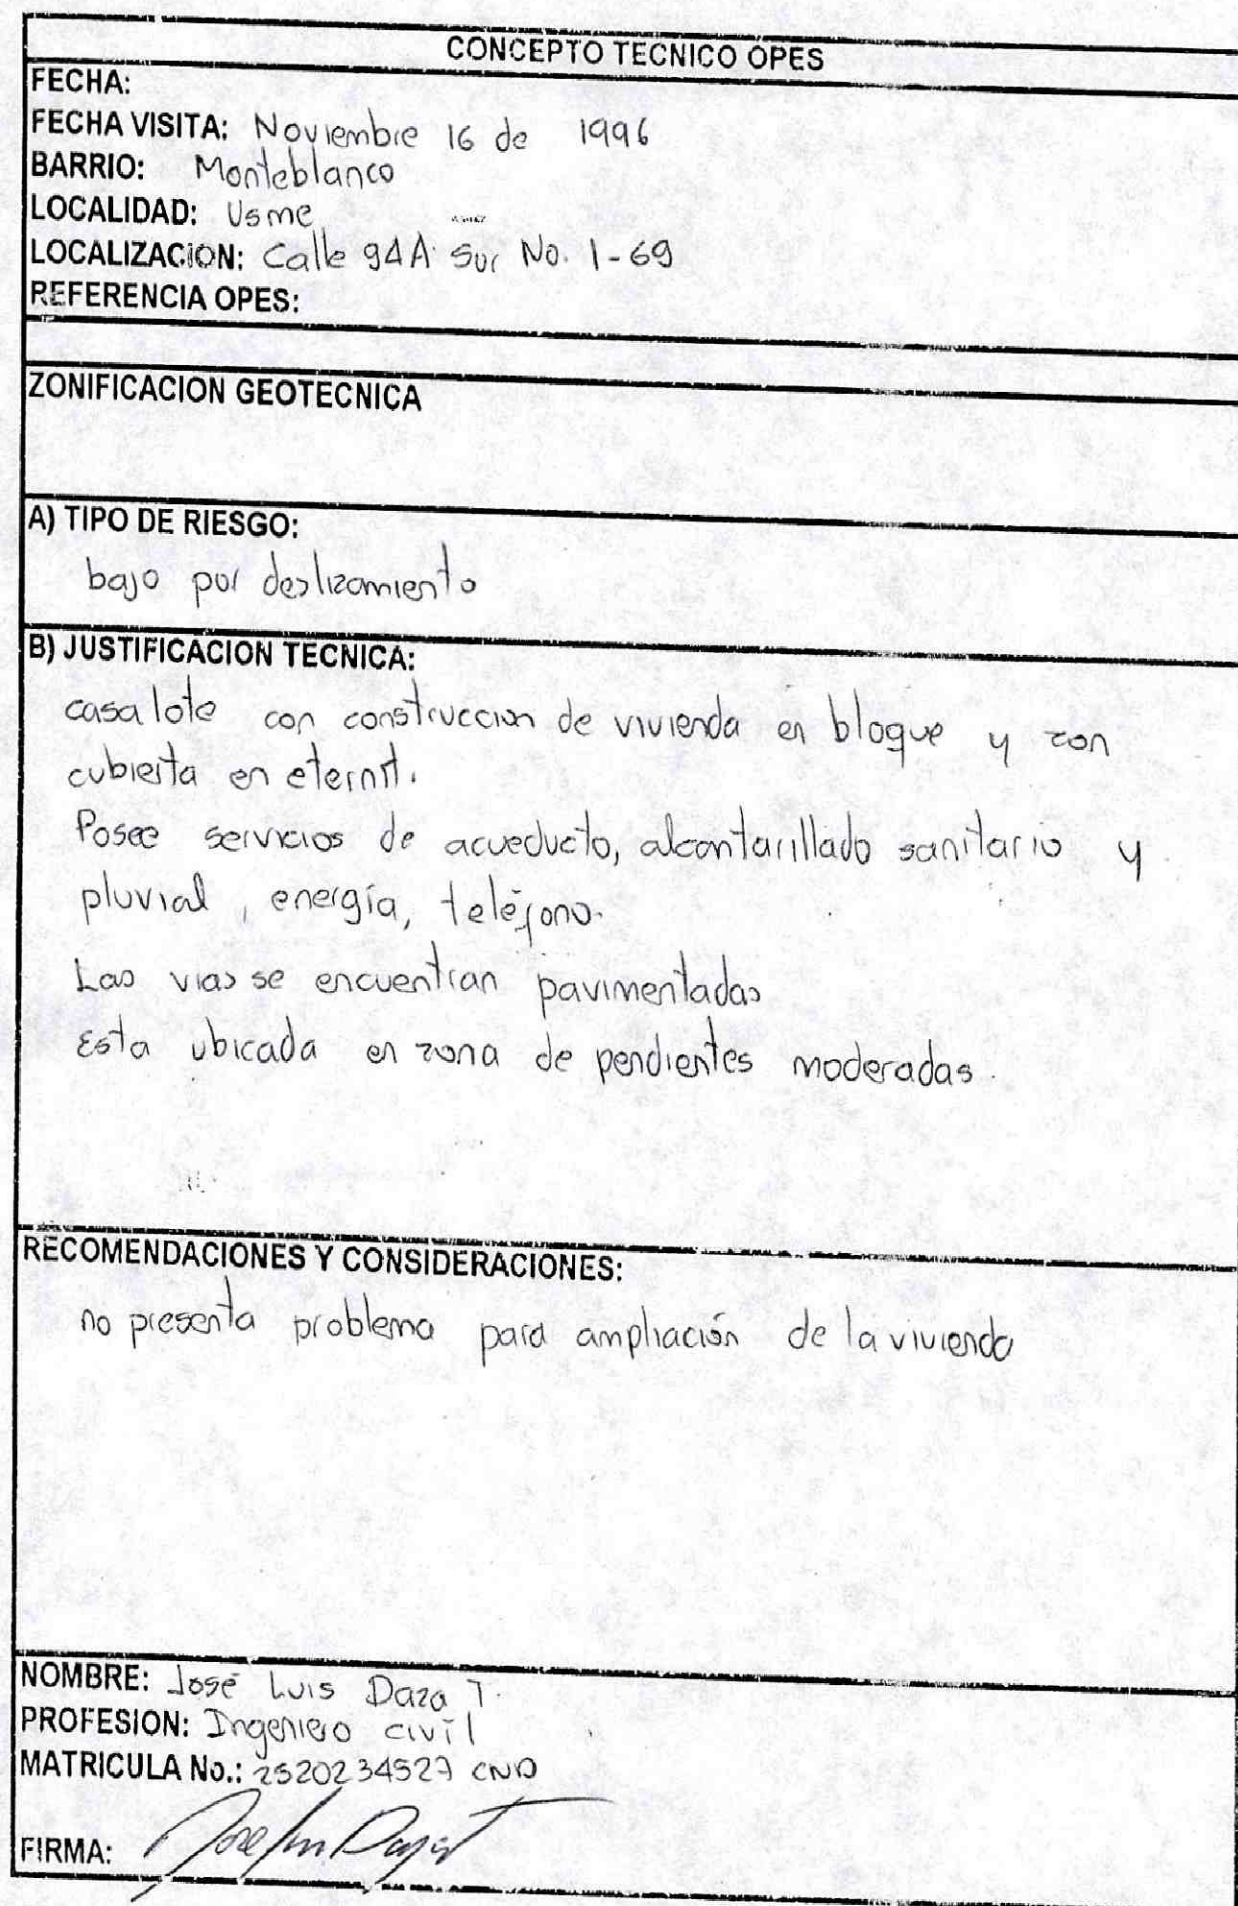 CONCEPTO TECNICO OPES
FECHA:
FECHA VISITA: Noviembre 16 de 1996
BARRIO: Monteblanco
LOCALIDAD: Usme
LOCALIZACION: Calle 94A Sur No. 1-69
REFERENCIA OPES:
ZONIFICACION GEOTECNICA
A) TIPO DE RIESGO:
bajo por deslizamiento
B) JUSTIFICACION TECNICA:
casa lote con construccion de vivienda en bloque y con
cubierta en eternit.
Posee servicios de acueducto, alcantarillado sanitario y
pluvial, energía, teléfono.
Las vias se encuentran pavimentadas
Esta ubicada en zona de pendientes moderadas.
RECOMENDACIONES Y CONSIDERACIONES:
no presenta problema para ampliación de la vivienda
NOMBRE: José Luis Daza T.
PROFESION: Ingeniero civil
MATRICULA No.: 2520234527 CND
FIRMA: